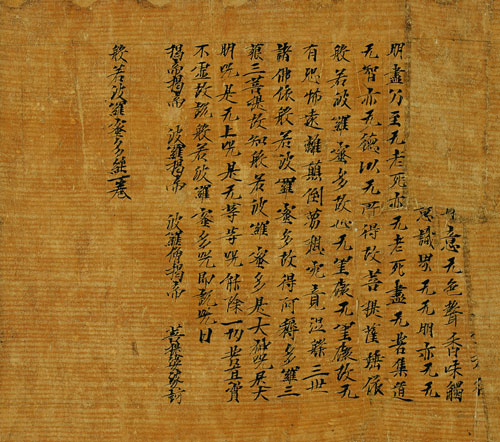 意无色聲香味觸
意識界无无明亦无无
明盡乃至无老死亦无老死盡无苦集道
无智亦无德以无所得故菩提薩埵依
般若波羅蜜多故心无罣礙无罣礙故无
有恐怖遠離顛倒夢想究竟涅槃三世
諸佛依般若波羅蜜多故得阿耨多羅三
藐三菩提故知般若波羅蜜多是大神呪是大
明呪是无上呪是无等等呪能除一切苦真實
不虛故說般若波羅蜜多呪即說呪曰
揭帝揭帝 波羅揭帝 波羅僧揭帝 菩提
般若波羅蜜多經一卷